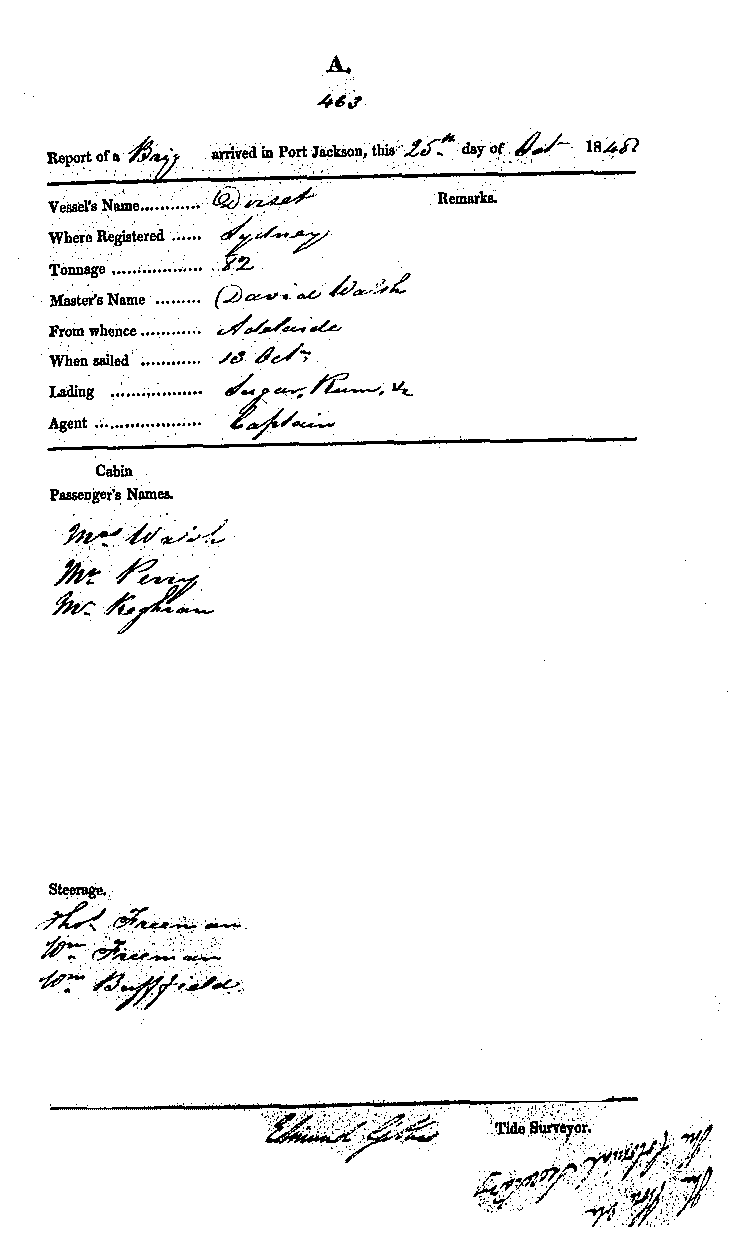 A.
463
Report of a Brigg arrived in Port Jackson, this 25th day of Oct 1848
Vessel's Name............ Dorset Remarks.
Where Registered ...... Sydney
Tonnage .................. 82
Master's Name ......... David Walsh
From whence ............ Adelaide
When sailed ............ 13 Octr
Lading .................. Sugar, Rum, &c
Agent ..................... Captain
Cabin
Passenger's Names.
Mrs Walsh
Mr Perry
Mr Keghran
Steerage.
Thos Freeman
Wm Freeman
Wm Buffield
Edmund Tide Surveyor.
The Hon the
The Colonial Secretary